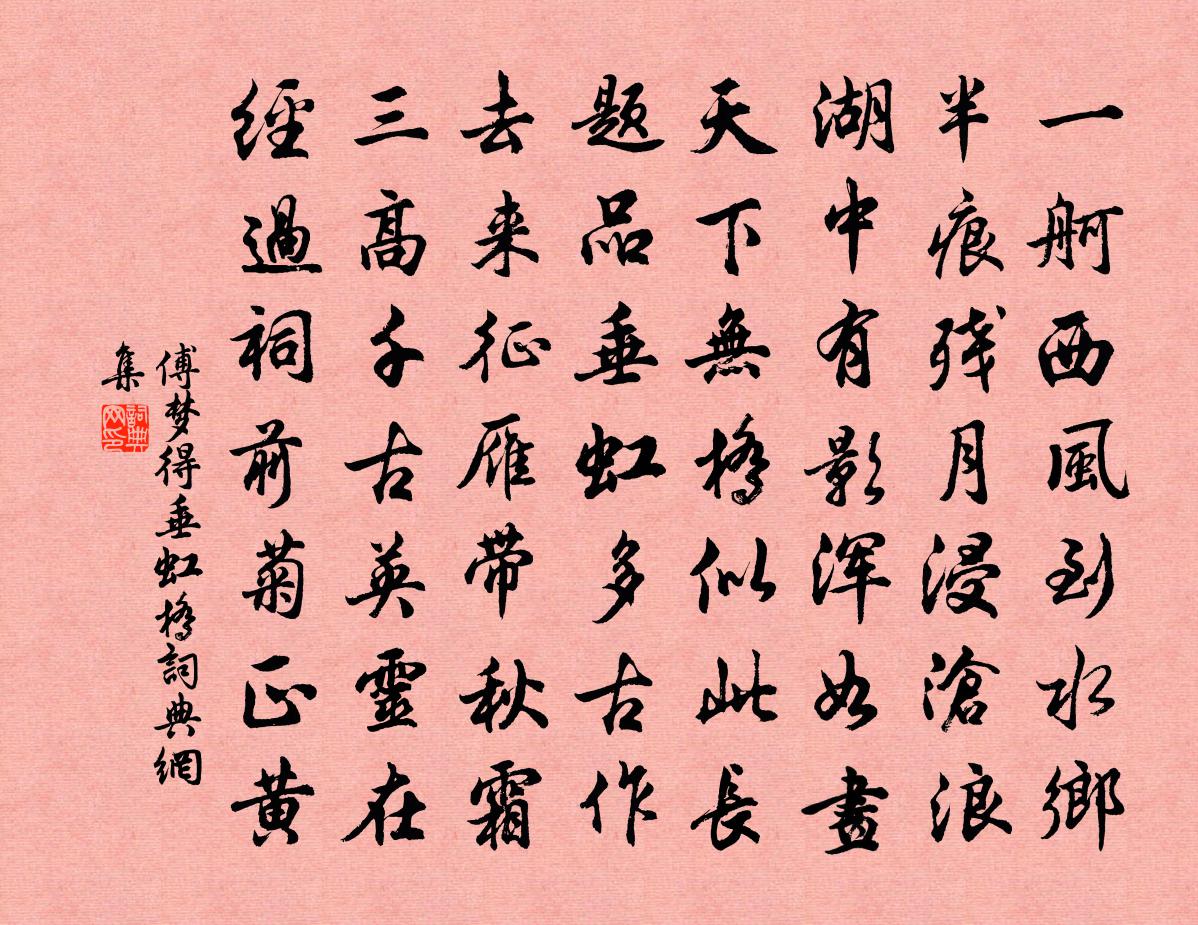 一舸西風到水鄉
半痕残月浸滄浪
湖中有影浑如畫
天下無橋似此長
题品垂虹多古作
去来征雁带秋霜
三高千古英靈在
經過祠前菊正黄
傅梦得垂虹橋詞典網
集
詞典網印